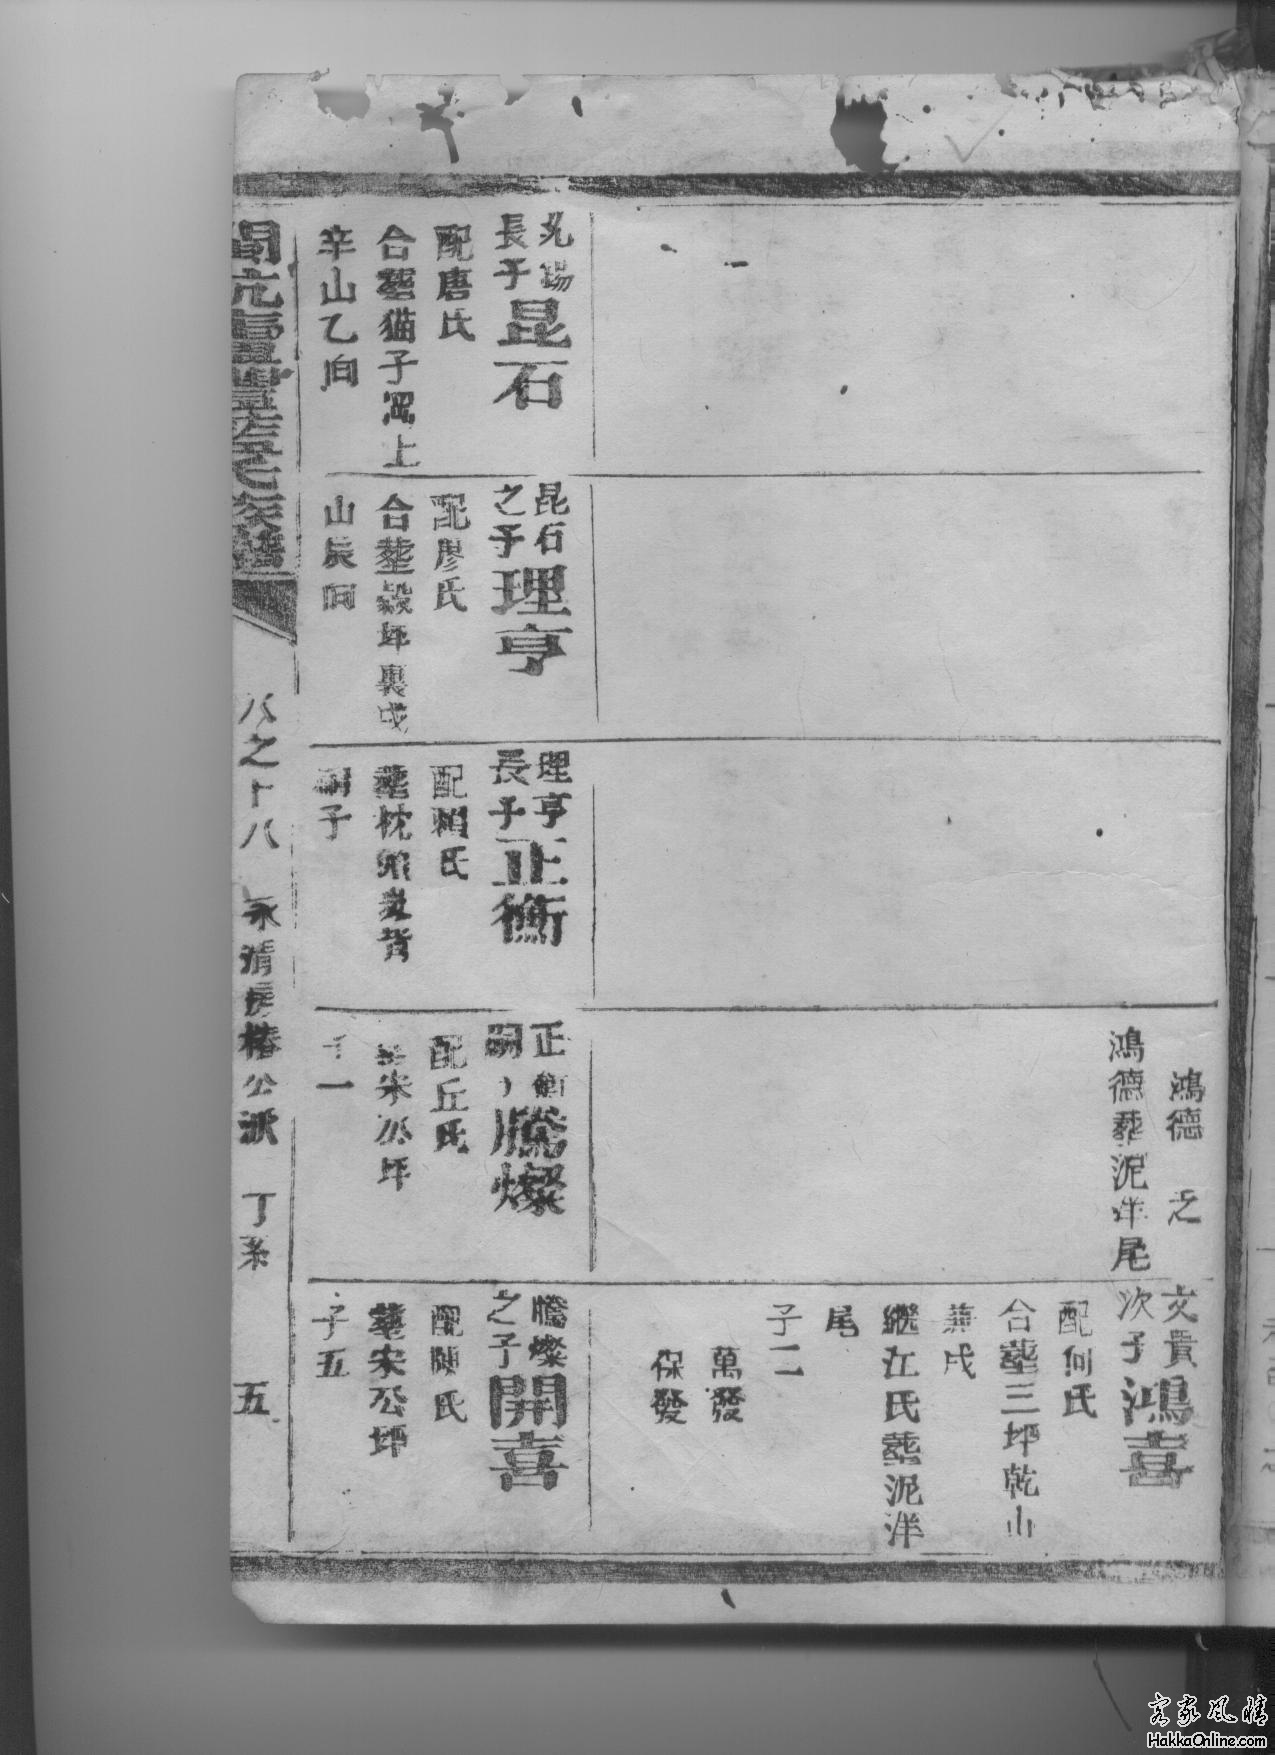 鴻德 之
鴻德葬泥洋尾
文貴
次子
鴻喜
配何氏
合葬三坪乾山
兼戌
繼江氏葬泥洋
尾
子二
萬發
保發
長子
昆石
配唐氏
合葬猫子崗上
辛山乙向
昆石
之子
理亨
配廖氏
合葬穀坪裏戌
山辰向
理亨
長子
正衡
配賴氏
葬枕頭 背
嗣子
正衡
嗣子
騰燦
配丘氏
宋公坪
子一
騰燦
之子
開喜
配陳氏
葬宋公坪
子五
氏族譜
八之十八
永清房椿公派
丁系
五
客家風情
HakkaOnline.com